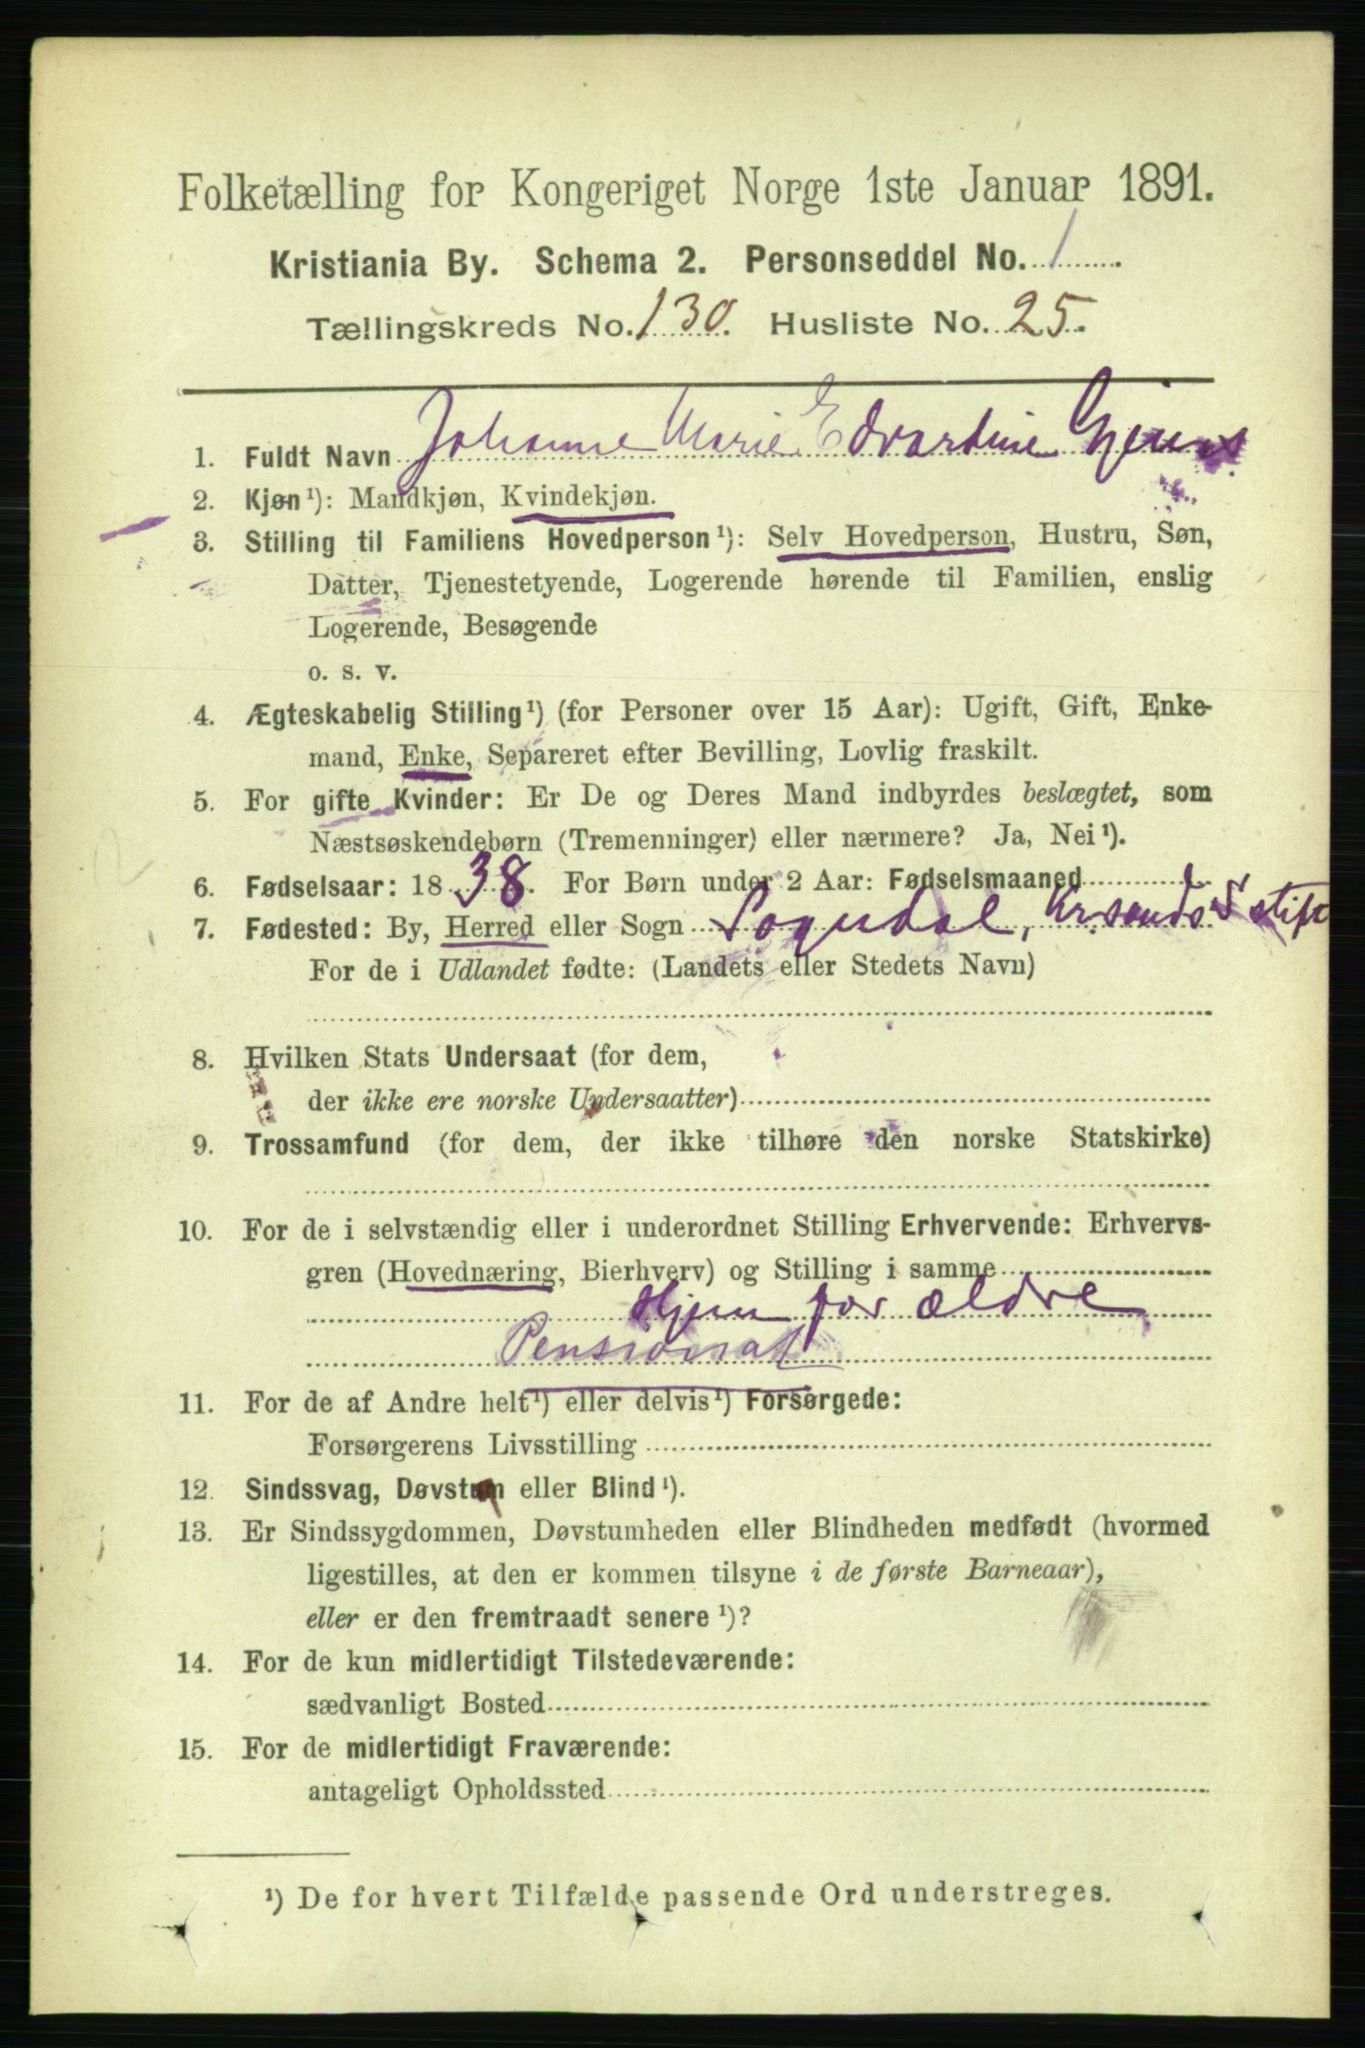 Folketælling for Kongeriget Norge 1ste Januar 1891.
Kristiania By. Schema 2. Personseddel No. 1.
Tællingskreds No. 130. Husliste No. 25.
1. Fuldt Navn Johanne Marie Edvartine
2. Kjøn ¹): Mandkjøn, Kvindekjøn.
3. Stilling til Familiens Hovedperson ¹): Selv Hovedperson, Hustru, Søn,
Datter, Tjenestetyende, Logerende hørende til Familien, enslig
Logerende, Besøgende
o. s. v.
4. Ægteskabelig Stilling ¹) (for Personer over 15 Aar): Ugift, Gift, Enke-
mand, Enke, Separeret efter Bevilling, Lovlig fraskilt.
5. For gifte Kvinder: Er De og Deres Mand indbyrdes beslægtet, som
Næstsøskendebørn (Tremenninger) eller nærmere? Ja, Nei ¹).
6. Fødselsaar: 1838. For Børn under 2 Aar: Fødselsmaaned
7. Fødested: By, Herred eller Sogn Sogndal, Kr.sands Stift
For de i Udlandet fødte: (Landets eller Stedets Navn)
8. Hvilken Stats Undersaat (for dem,
der ikke ere norske Undersaatter)
9. Trossamfund (for dem, der ikke tilhøre den norske Statskirke)
10. For de i selvstændig eller i underordnet Stilling Erhvervende: Erhvervs-
gren (Hovednæring, Bierhverv) og Stilling i samme
Hjem for ældre
11. For de af Andre helt ¹) eller delvis ¹) Forsørgede:
Forsørgerens Livsstilling
12. Sindssvag, Døvstum eller Blind ¹).
13. Er Sindssygdommen, Døvstumheden eller Blindheden medfødt (hvormed
ligestilles, at den er kommen tilsyne i de første Barneaar),
eller er den fremtraadt senere ¹)?
14. For de kun midlertidigt Tilstedeværende:
sædvanligt Bosted
15. For de midlertidigt Fraværende:
antageligt Opholdssted
¹) De for hvert Tilfælde passende Ord understreges.